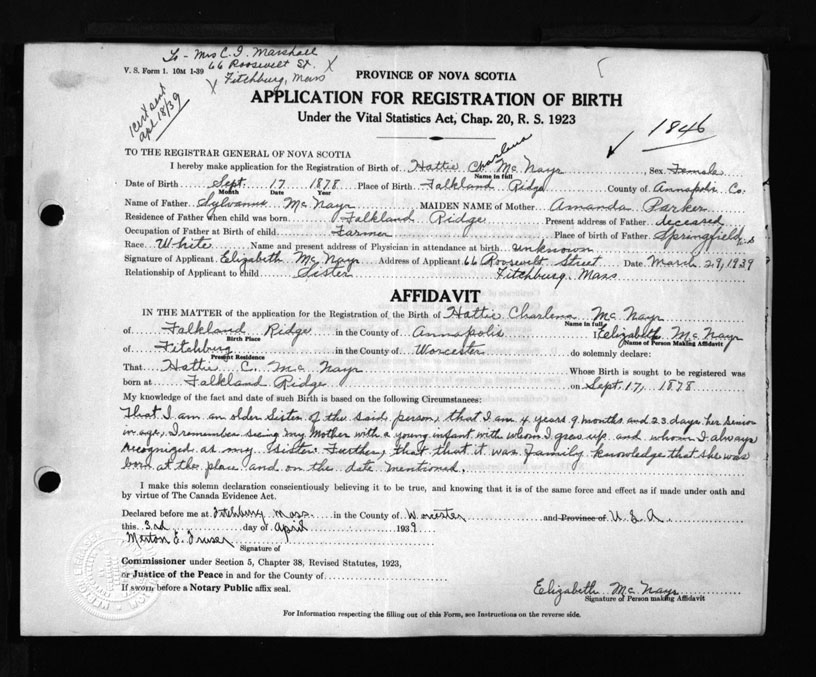 To - Mrs C. I. Marshall
66 Roosevelt St. X
X Fitchburg, Mass
V. S. Form 1. 10M 1-39
Cert sent
Apl 18/39
PROVINCE OF NOVA SCOTIA
APPLICATION FOR REGISTRATION OF BIRTH
Under the Vital Statistics Act, Chap. 20, R. S. 1923
1846
TO THE REGISTRAR GENERAL OF NOVA SCOTIA
I hereby make application for the Registration of Birth of Hattie Charlena Mc Nayr, Sex Female
Name in full
Date of Birth Sept. 17 1878 Place of Birth Falkland Ridge County of Annapolis Co.
Month Date Year
Name of Father Sylvanus Mc Nayr MAIDEN NAME of Mother Amanda Parker
Residence of Father when child was born Falkland Ridge Present address of Father deceased
Occupation of Father at Birth of child Farmer Place of Birth of Father Springfield
Race White Name and present address of Physician in attendance at birth unknown
Signature of Applicant Elizabeth Mc Nayr Address of Applicant 66 Roosevelt Street Date March 29, 1939
Relationship of Applicant to child Sister Fitchburg Mass
AFFIDAVIT
IN THE MATTER of the application for the Registration of the Birth of Hattie Charlena Mc Nayr
Name in full
of Falkland Ridge in the County of Annapolis I Elizabeth Mc Nayr
Birth Place Name of Person Making Affidavit
of Fitchburg in the County of Worcester do solemnly declare:
Present Residence
That Hattie C. Mc Nayr Whose Birth is sought to be registered was
born at Falkland Ridge on Sept. 17, 1878
My knowledge of the fact and date of such Birth is based on the following Circumstances:
That I am an older Sister of the said person, that I am 4 years 9 months and 23 days her senior
in age, I remember seeing my Mother with a young infant with whom I grew up and whom I always
recognized as my sister. Further, that that it was Family knowledge that she was
born at the place and on the date mentioned.
I make this solemn declaration conscientiously believing it to be true, and knowing that it is of the same force and effect as if made under oath and
by virtue of The Canada Evidence Act.
Declared before me at Fitchburg Mass. in the County of Worcester and Province of U. S. A.
this 3rd day of April 1939
Merton E.
Signature of
Commissioner under Section 5, Chapter 38, Revised Statutes, 1923,
or Justice of the Peace in and for the County of
If sworn before a Notary Public affix seal.
Elizabeth Mc Nayr
Signature of Person making Affidavit
For Information respecting the filling out of this Form, see Instructions on the reverse side.